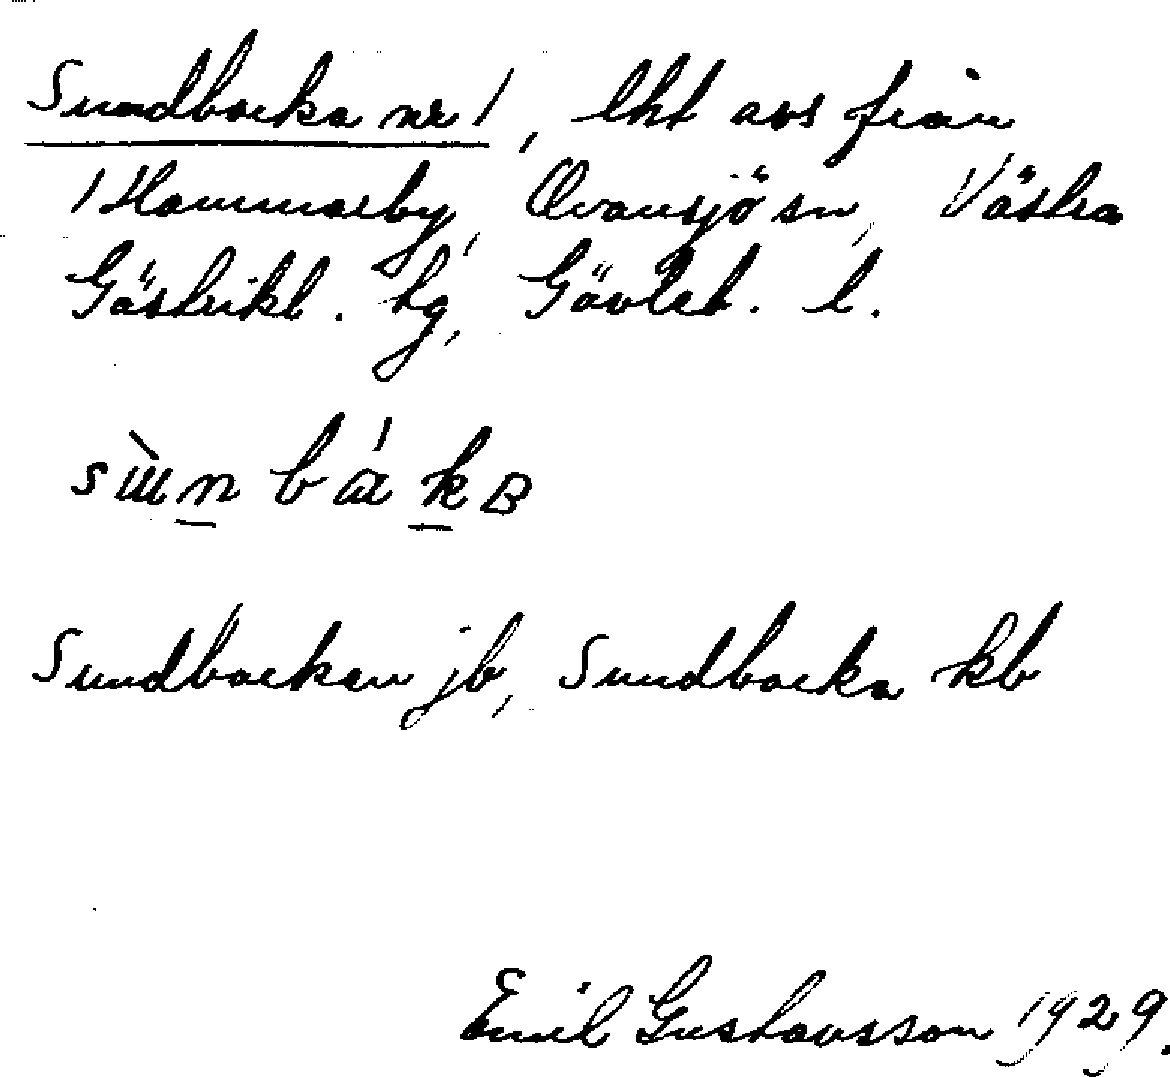 Sundbacka nr 1, lht avs från
Hammarby, Ovansjö sn, Västra
Gästrikl. tg, Gävleb. l.
Sundbackan jb, Sundbacka kb
Emil Gustavsson 1929.